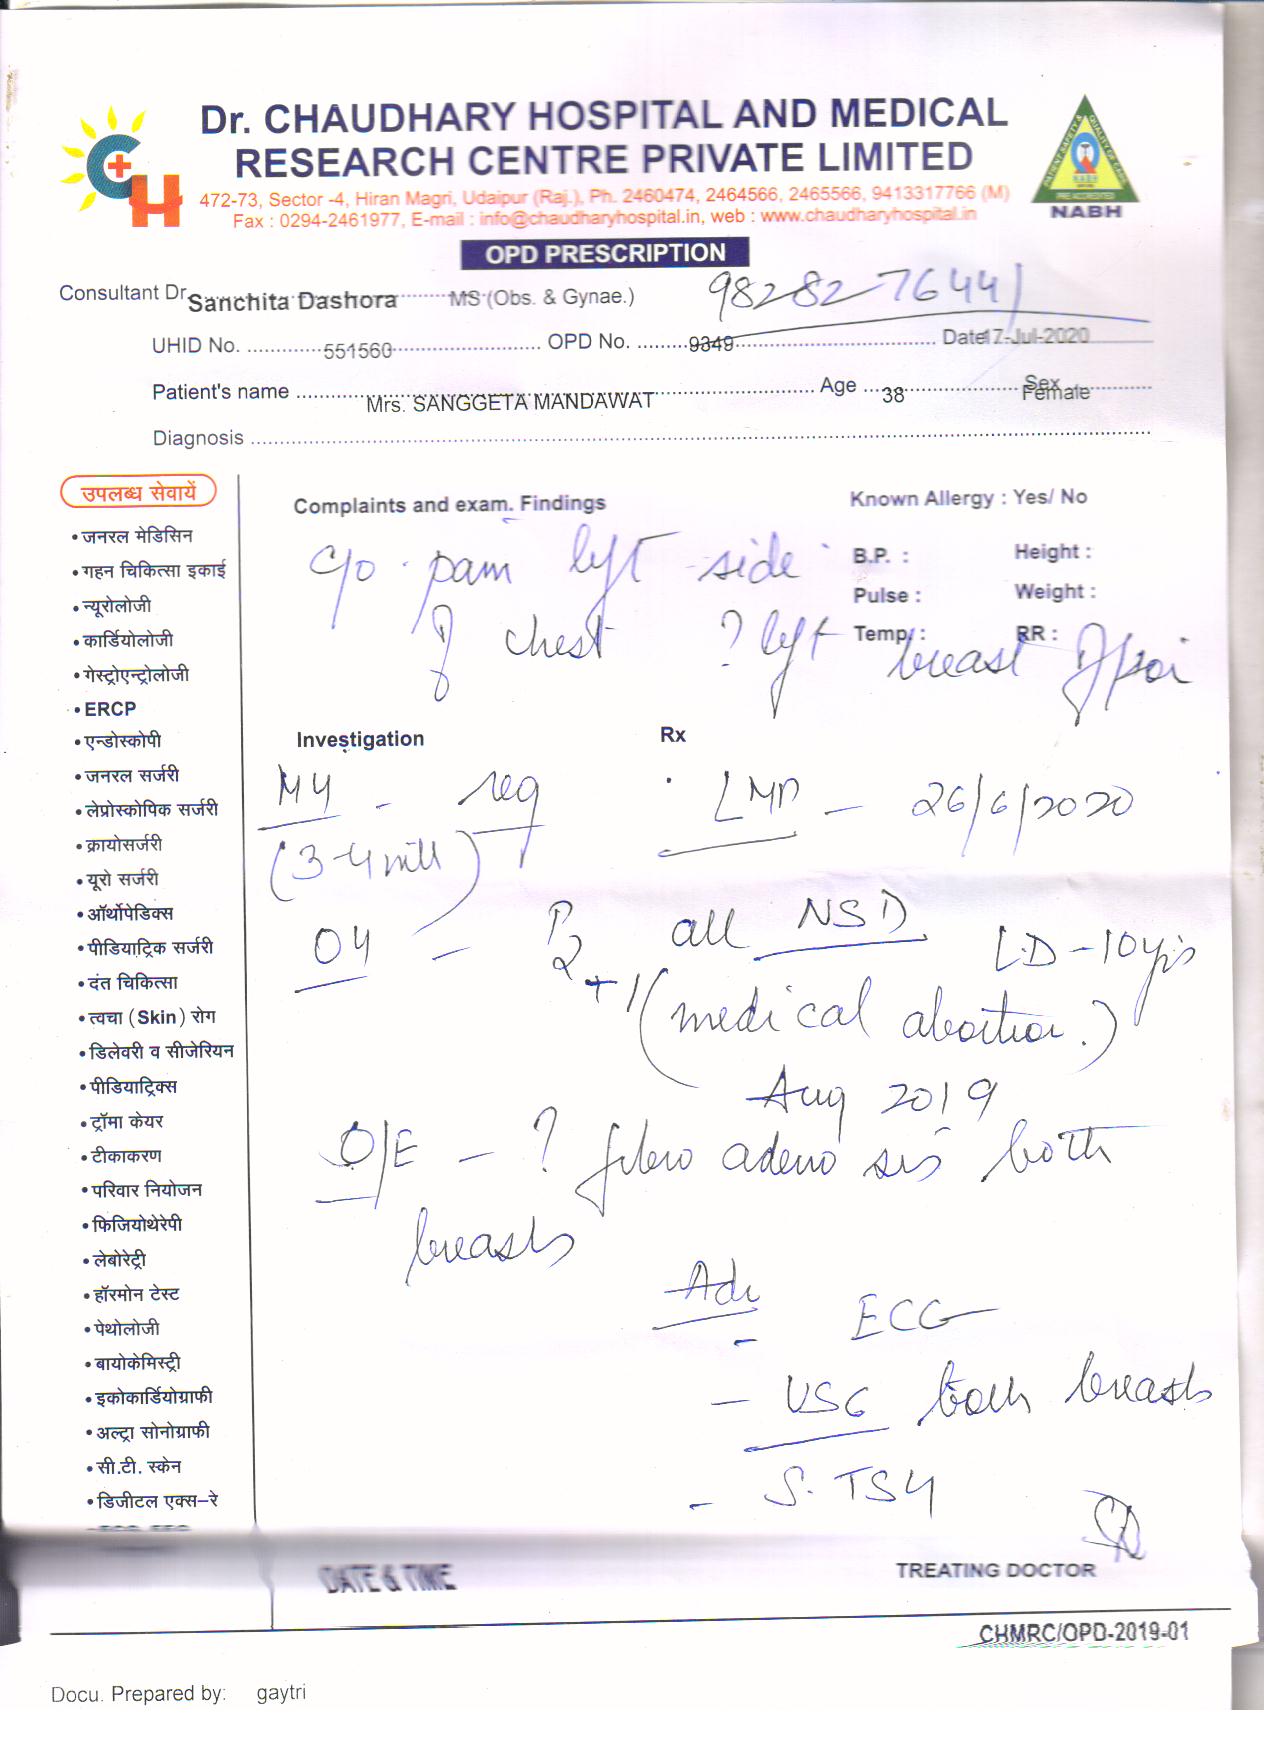 Dr. CHAUDHARY HOSPITAL AND MEDICAL
RESEARCH CENTRE PRIVATE LIMITED
472-73, Sector -4, Hiran Magri, Udaipur (Raj.), Ph. 2460474, 2464566, 2465566, 9413317766 (M)
Fax : 0294-2461977, E-mail : info@chaudharyhospital.in, web : www.chaudharyhospital.in
NABH
OPD PRESCRIPTION
98282-76441
Consultant Dr. Sanchita Dashora MS (Obs. & Gynae.)
UHID No. 551560 OPD No. 9349 Date 17-Jul-2020
Patient's name Mrs. SANGGETA MANDAWAT Age 38 Sex Female
Diagnosis
उपलब्ध सेवायें
• जनरल मेडिसिन
• गहन चिकित्सा इकाई
• न्यूरोलोजी
• कार्डियोलोजी
• गेस्ट्रोएन्ट्रोलोजी
• ERCP
• एन्डोस्कोपी
• जनरल सर्जरी
• लेप्रोस्कोपिक सर्जरी
• क्रायोसर्जरी
• यूरो सर्जरी
• ऑर्थोपेडिक्स
• पीडियाट्रिक सर्जरी
• दंत चिकित्सा
• त्वचा (Skin) रोग
• डिलेवरी व सीजेरियन
• पीडियाट्रिक्स
• ट्रॉमा केयर
• टीकाकरण
• परिवार नियोजन
• फिजियोथेरेपी
• लेबोरेट्री
• हॉरमोन टेस्ट
• पेथोलोजी
• बायोकेमिस्ट्री
• इकोकार्डियोग्राफी
• अल्ट्रा सोनोग्राफी
• सी.टी. स्केन
• डिजीटल एक्स-रे
Complaints and exam. Findings
Known Allergy : Yes/ No
B.P. : Height :
Pulse : Weight :
Temp. : RR :
C/o pain left side
of chest ? left breast
Investigation Rx
MH - reg LMP - 26/6/2020
(3-4
OH - P2+1 all NSD LD - 10yrs
(medical abortion.)
Aug 2019
O/E - ? fibro adeno sis both
breasts
Adv
- ECG
- USG both breasts
- S. TSH
DATE & TIME
TREATING DOCTOR
CHMRC/OPD-2019-01
Docu. Prepared by: gaytri